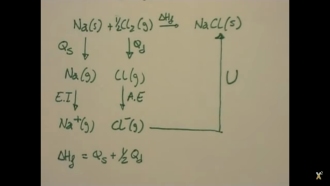 Na(s) + ½Cl₂(g) →ΔHf NaCl(s)
Qs ↓ ↓ Qd
Na(g) Cl(g) U
E.I ↓ ↓ A.E
Na⁺(g) Cl⁻(g)
ΔHf = Qs + ½ Qd